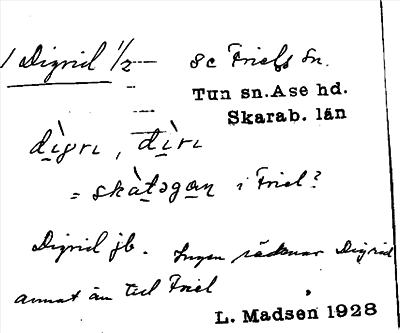 / Digrid 1/2 — 8c Friels sn.
Tun sn. Ase hd.
Skarab. län
dìgrı, dìrı
= skàtəgan i Friel?
Digrid jb. Ingen räknar Digrid
annat än till Friel
L. Madsen 1928